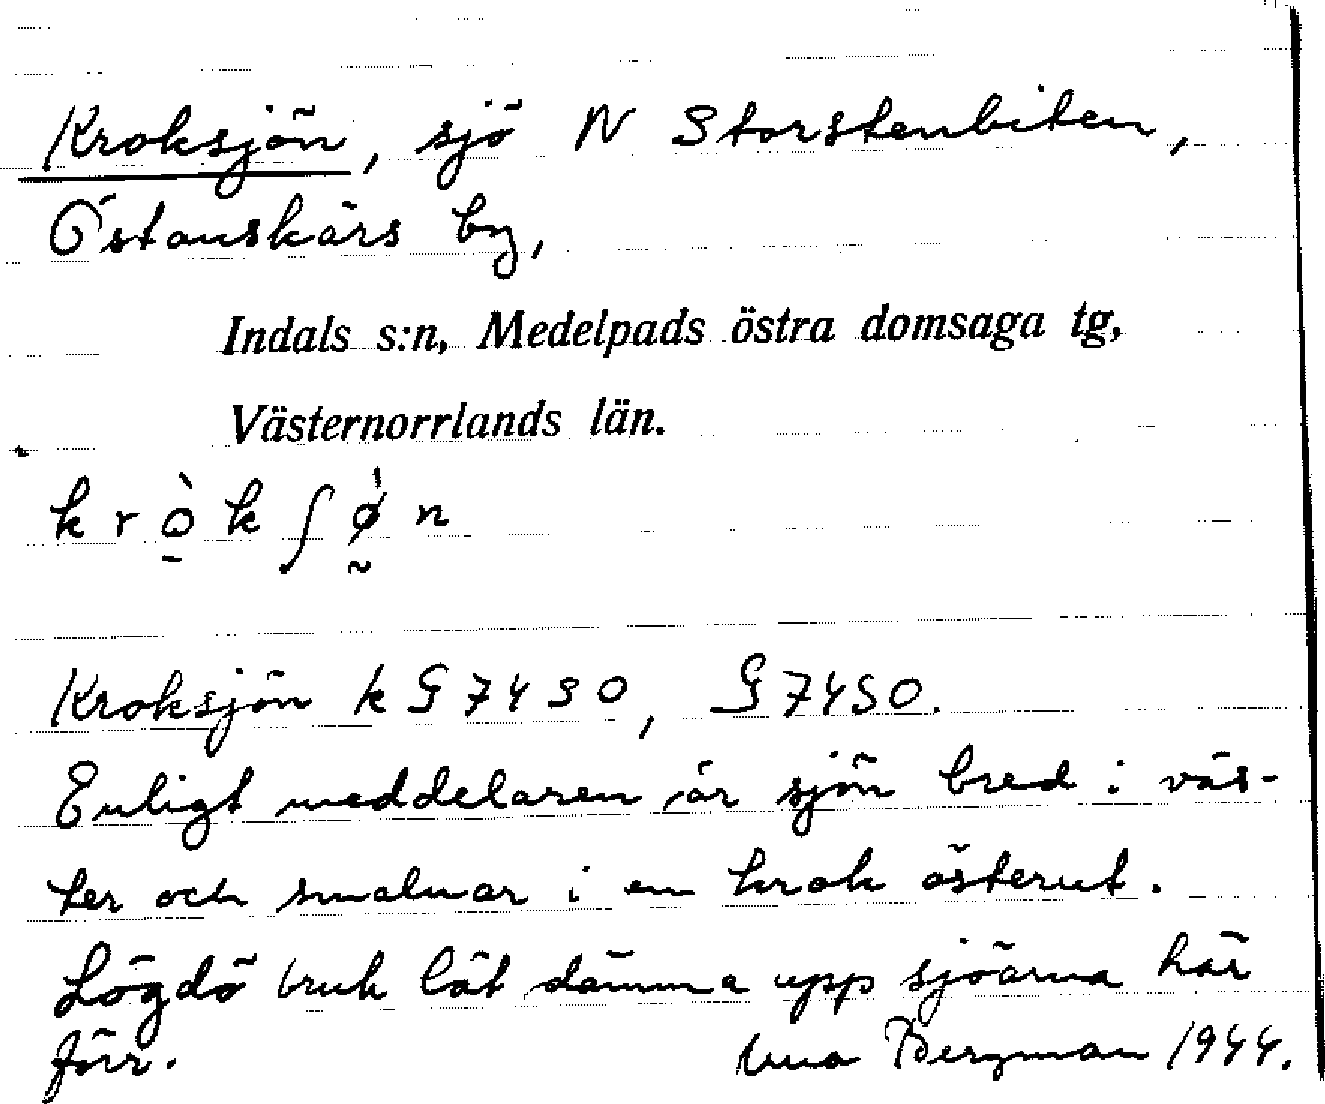 Kroksjön, sjö N Storstenbiten,
Östanskärs by,
Indals s:n, Medelpads östra domsaga tg,
Västernorrlands län.
k r ò̠ k ʃ ø̰̍ n
Kroksjön k G 7450, G 7450.
Enligt meddelaren är sjön bred i väs-
ter och smalnar i en krok österut.
Lögdö bruk lät dämma upp sjöarna här
förr. Una Bergman 1944.